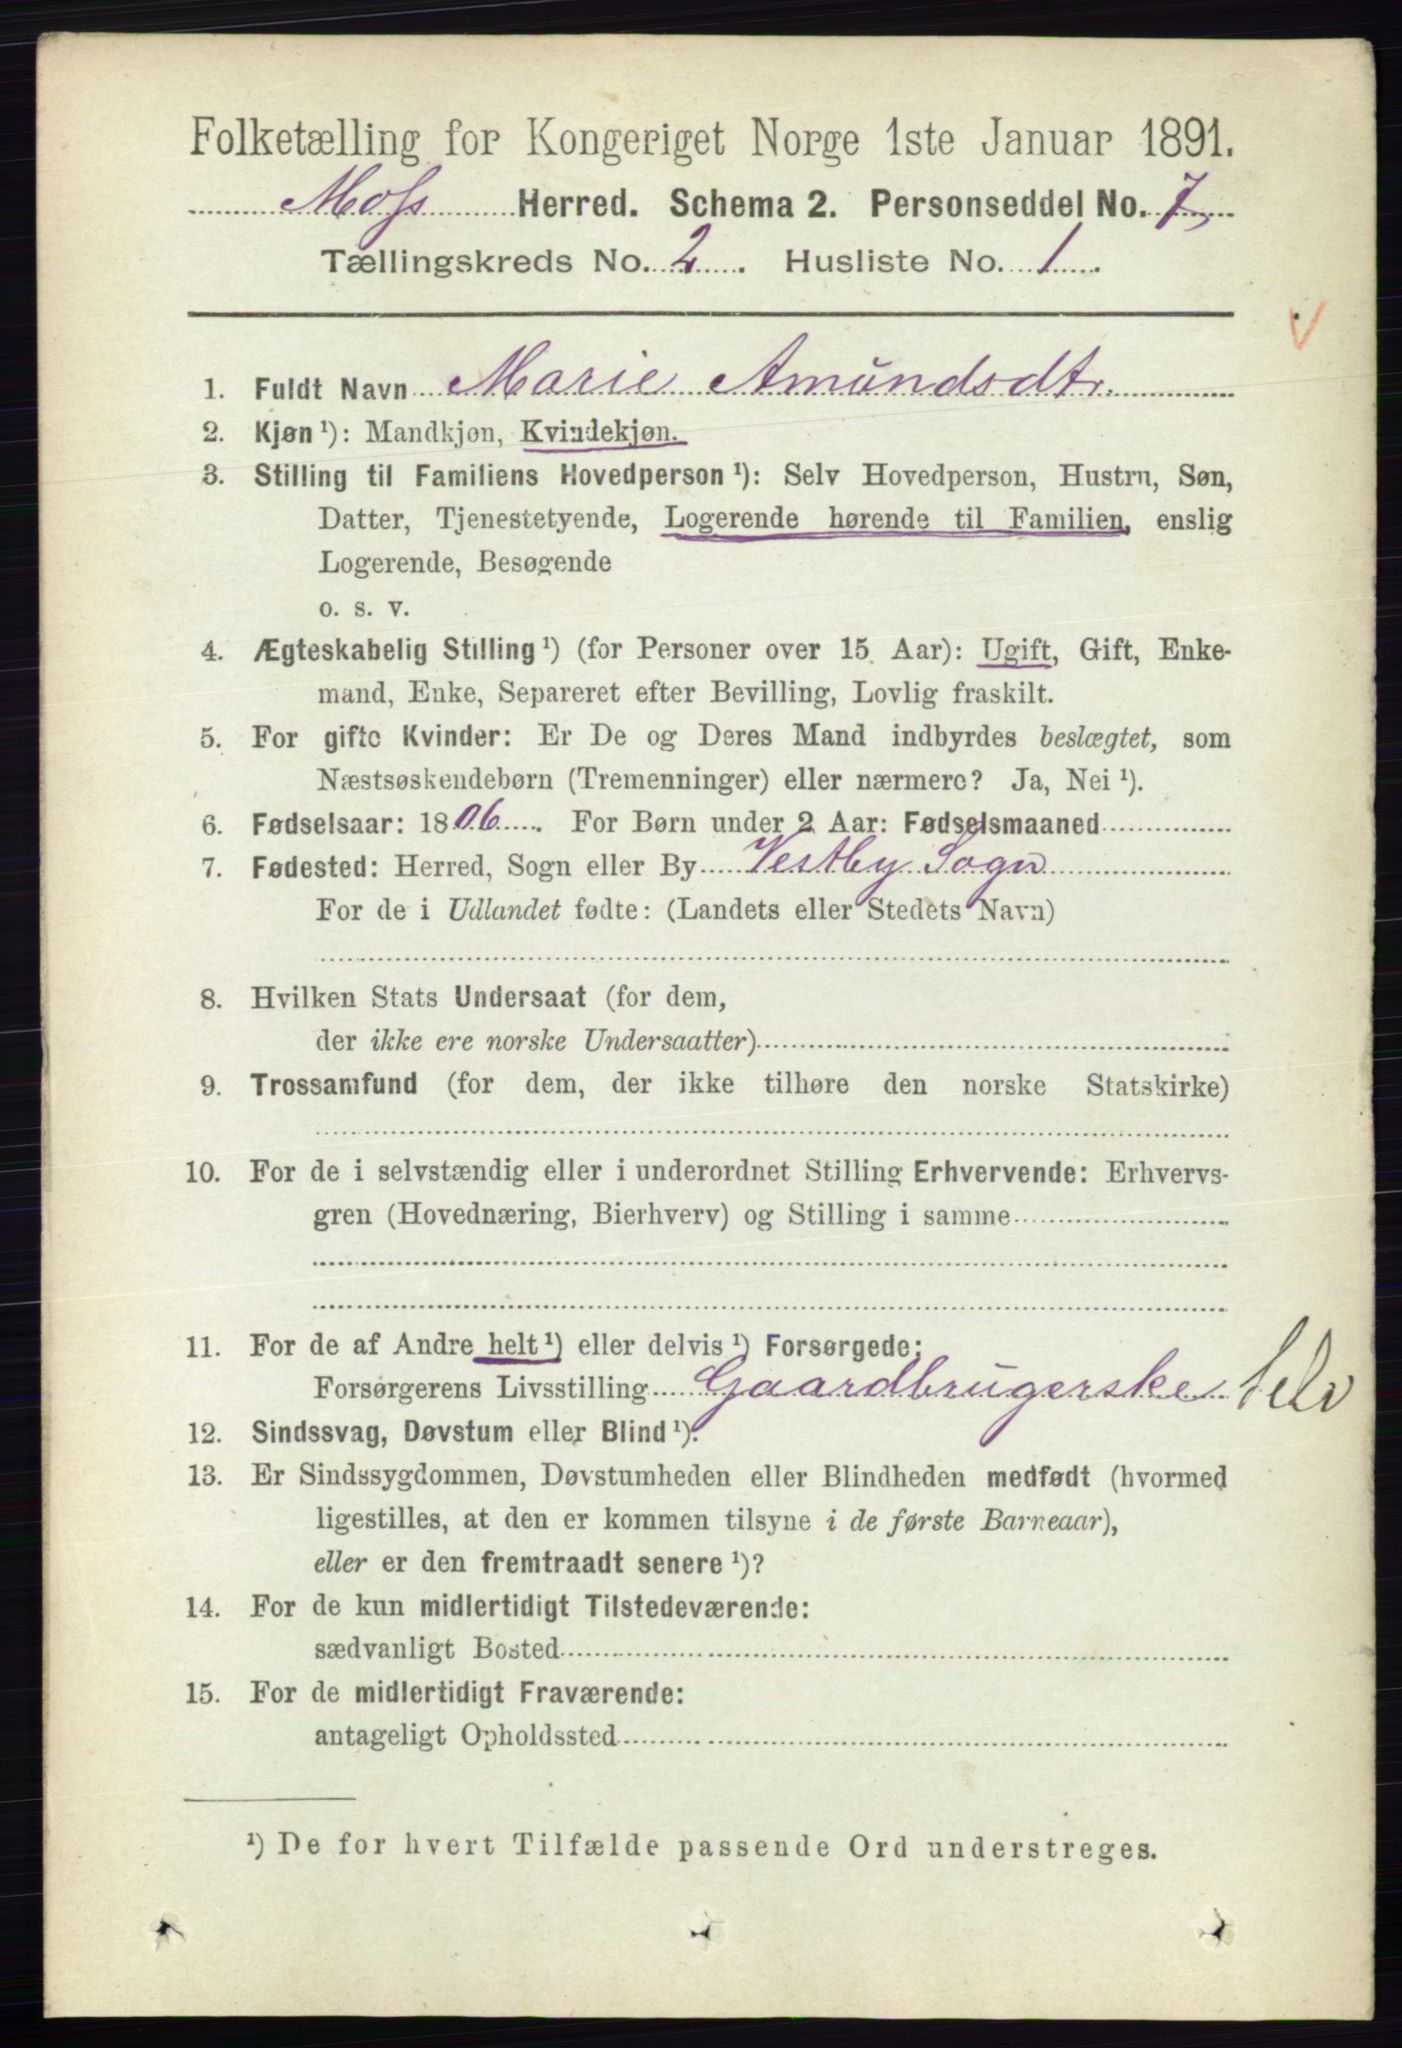 Folketælling for Kongeriget Norge 1ste Januar 1891.
Moss Herred. Schema 2. Personseddel No. 7,
Tællingskreds No. 2. Husliste No. 1.
1. Fuldt Navn Marie Amundsdtr.
2. Kjøn ¹): Mandkjøn, Kvindekjøn.
3. Stilling til Familiens Hovedperson ¹): Selv Hovedperson, Hustru, Søn,
Datter, Tjenestetyende, Logerende hørende til Familien, enslig
Logerende, Besøgende
o. s. v.
4. Ægteskabelig Stilling ¹) (for Personer over 15 Aar): Ugift, Gift, Enke-
mand, Enke, Separeret efter Bevilling, Lovlig fraskilt.
5. For gifte Kvinder: Er De og Deres Mand indbyrdes beslægtet, som
Næstsøskendebørn (Tremenninger) eller nærmere? Ja, Nei ¹).
6. Fødselsaar: 1806. For Børn under 2 Aar: Fødselsmaaned
7. Fødested: Herred, Sogn eller By Vestby Sogn
For de i Udlandet fødte: (Landets eller Stedets Navn)
8. Hvilken Stats Undersaat (for dem,
der ikke ere norske Undersaatter)
9. Trossamfund (for dem, der ikke tilhøre den norske Statskirke)
10. For de i selvstændig eller i underordnet Stilling Erhvervende: Erhvervs-
gren (Hovednæring, Bierhverv) og Stilling i samme
11. For de af Andre helt ¹) eller delvis ¹) Forsørgede:
Forsørgerens Livsstilling Gaardbrugerske Selv
12. Sindssvag, Døvstum eller Blind ¹).
13. Er Sindssygdommen, Døvstumheden eller Blindheden medfødt (hvormed
ligestilles, at den er kommen tilsyne i de første Barneaar),
eller er den fremtraadt senere ¹)?
14. For de kun midlertidigt Tilstedeværende:
sædvanligt Bosted
15. For de midlertidigt Fraværende:
antageligt Opholdssted
¹) De for hvert Tilfælde passende Ord understreges.